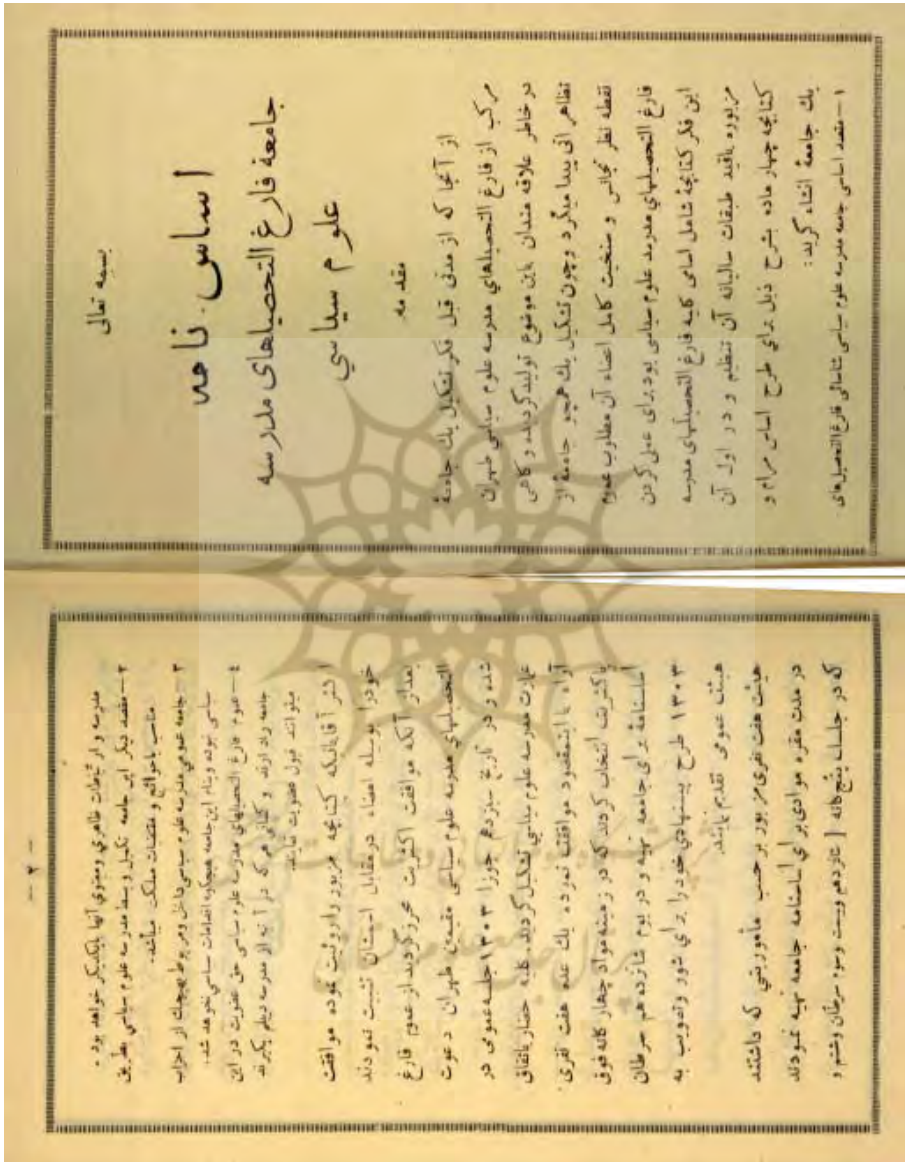 بسمه تعالی
اساس نامه
جامعهٔ فارغ التحصیلهای مدرسه
علوم سیاسی
مقدمه
از آنجا که از مدتی قبل فکر تشکیل یک جامعهٔ
مرکب از فارغ التحصیلهای مدرسه علوم سیاسی طهران
در خاطر علاقه مندان باین موضوع تولید گردیده و گاهی
تظاهراتی پیدا میکرد و چون تشکیل یک همچو جامعهٔ از
نقطه نظر تجانس و سنخیت کامل اعضاء آن مطلوب عموم
فارغ التحصیلهای مدرسه علوم سیاسی بود برای عملی کردن
این فکر کتابچهٔ شامل اسامی کلیه فارغ التحصیلهای مدرسه
مزبوره باقید طبقات سالیانه آن تنظیم و در اول آن
کتابچه چهار ماده بشرح ذیل برای طرح اساس مرام و
یک جامعهٔ انشاء گردید:
۱ – مقصد اساسی جامعه مدرسه علوم سیاسی شناسائی فارغ التحصیل های
– ۲ –
مدرسه و ارتباطات ظاهری و معنوی آنها بایکدیگر خواهد بود.
۲ – مقصد دیگر این جامعه تکمیل و بسط مدرسه علوم سیاسی بطریق
مناسب باحوائج و مقتضیات مملکت میباشد.
۳ – جامعه عمومی مدرسه علوم سیاسی داخل و مربوط بهیچیک از احزاب
سیاسی نبوده و بنام این جامعه هیچگونه اقدامات سیاسی نخواهد شد.
٤ – عموم فارغ التحصیلهای مدرسه علوم سیاسی حق عضویت در این
جامعه را دارند و کسانی هم که در آتیه از مدرسه دیپلم بگیرند
میتوانند قبول عضویت نمایند.
اکثر آقایانیکه کتابچه مزبور را رؤیت نموده موافقت
خودرا بوسیله امضاء در مقابل اسمشان تثبیت نمودند
بعداز آنکه موافقت اکثریت محرز گردید از عموم فارغ
التحصیلهای مدرسه علوم سیاسی مقیمین طهران دعوت
شده و در تاریخ سیزدهم جوزا ۱۳۰۳ جلسه عمومی در
عمارت مدرسه علوم سیاسی تشکیل گردید. کلیه حضار باتفاق
آراء با اینمقصود موافقت نموده یک عده هفت نفری
باکثریت انتخاب کردند که در زمینه مواد چهار گانه فوق
اساسنامهٔ برای جامعه تهیه و در یوم شانزدهم سرطان
۱۳۰۳ طرح پیشنهادی خود را برای شور و تصویب به
هیئت عمومی تقدیم نمایند.
هیئت هفت نفری مزبور بر حسب مأموریتی که داشتند
در مدت مقرره موادی برای اساسنامه جامعه تهیه نمودند
که در جلسات پنج گانه [ شانزدهم و بیست و سوم سرطان و ششم و